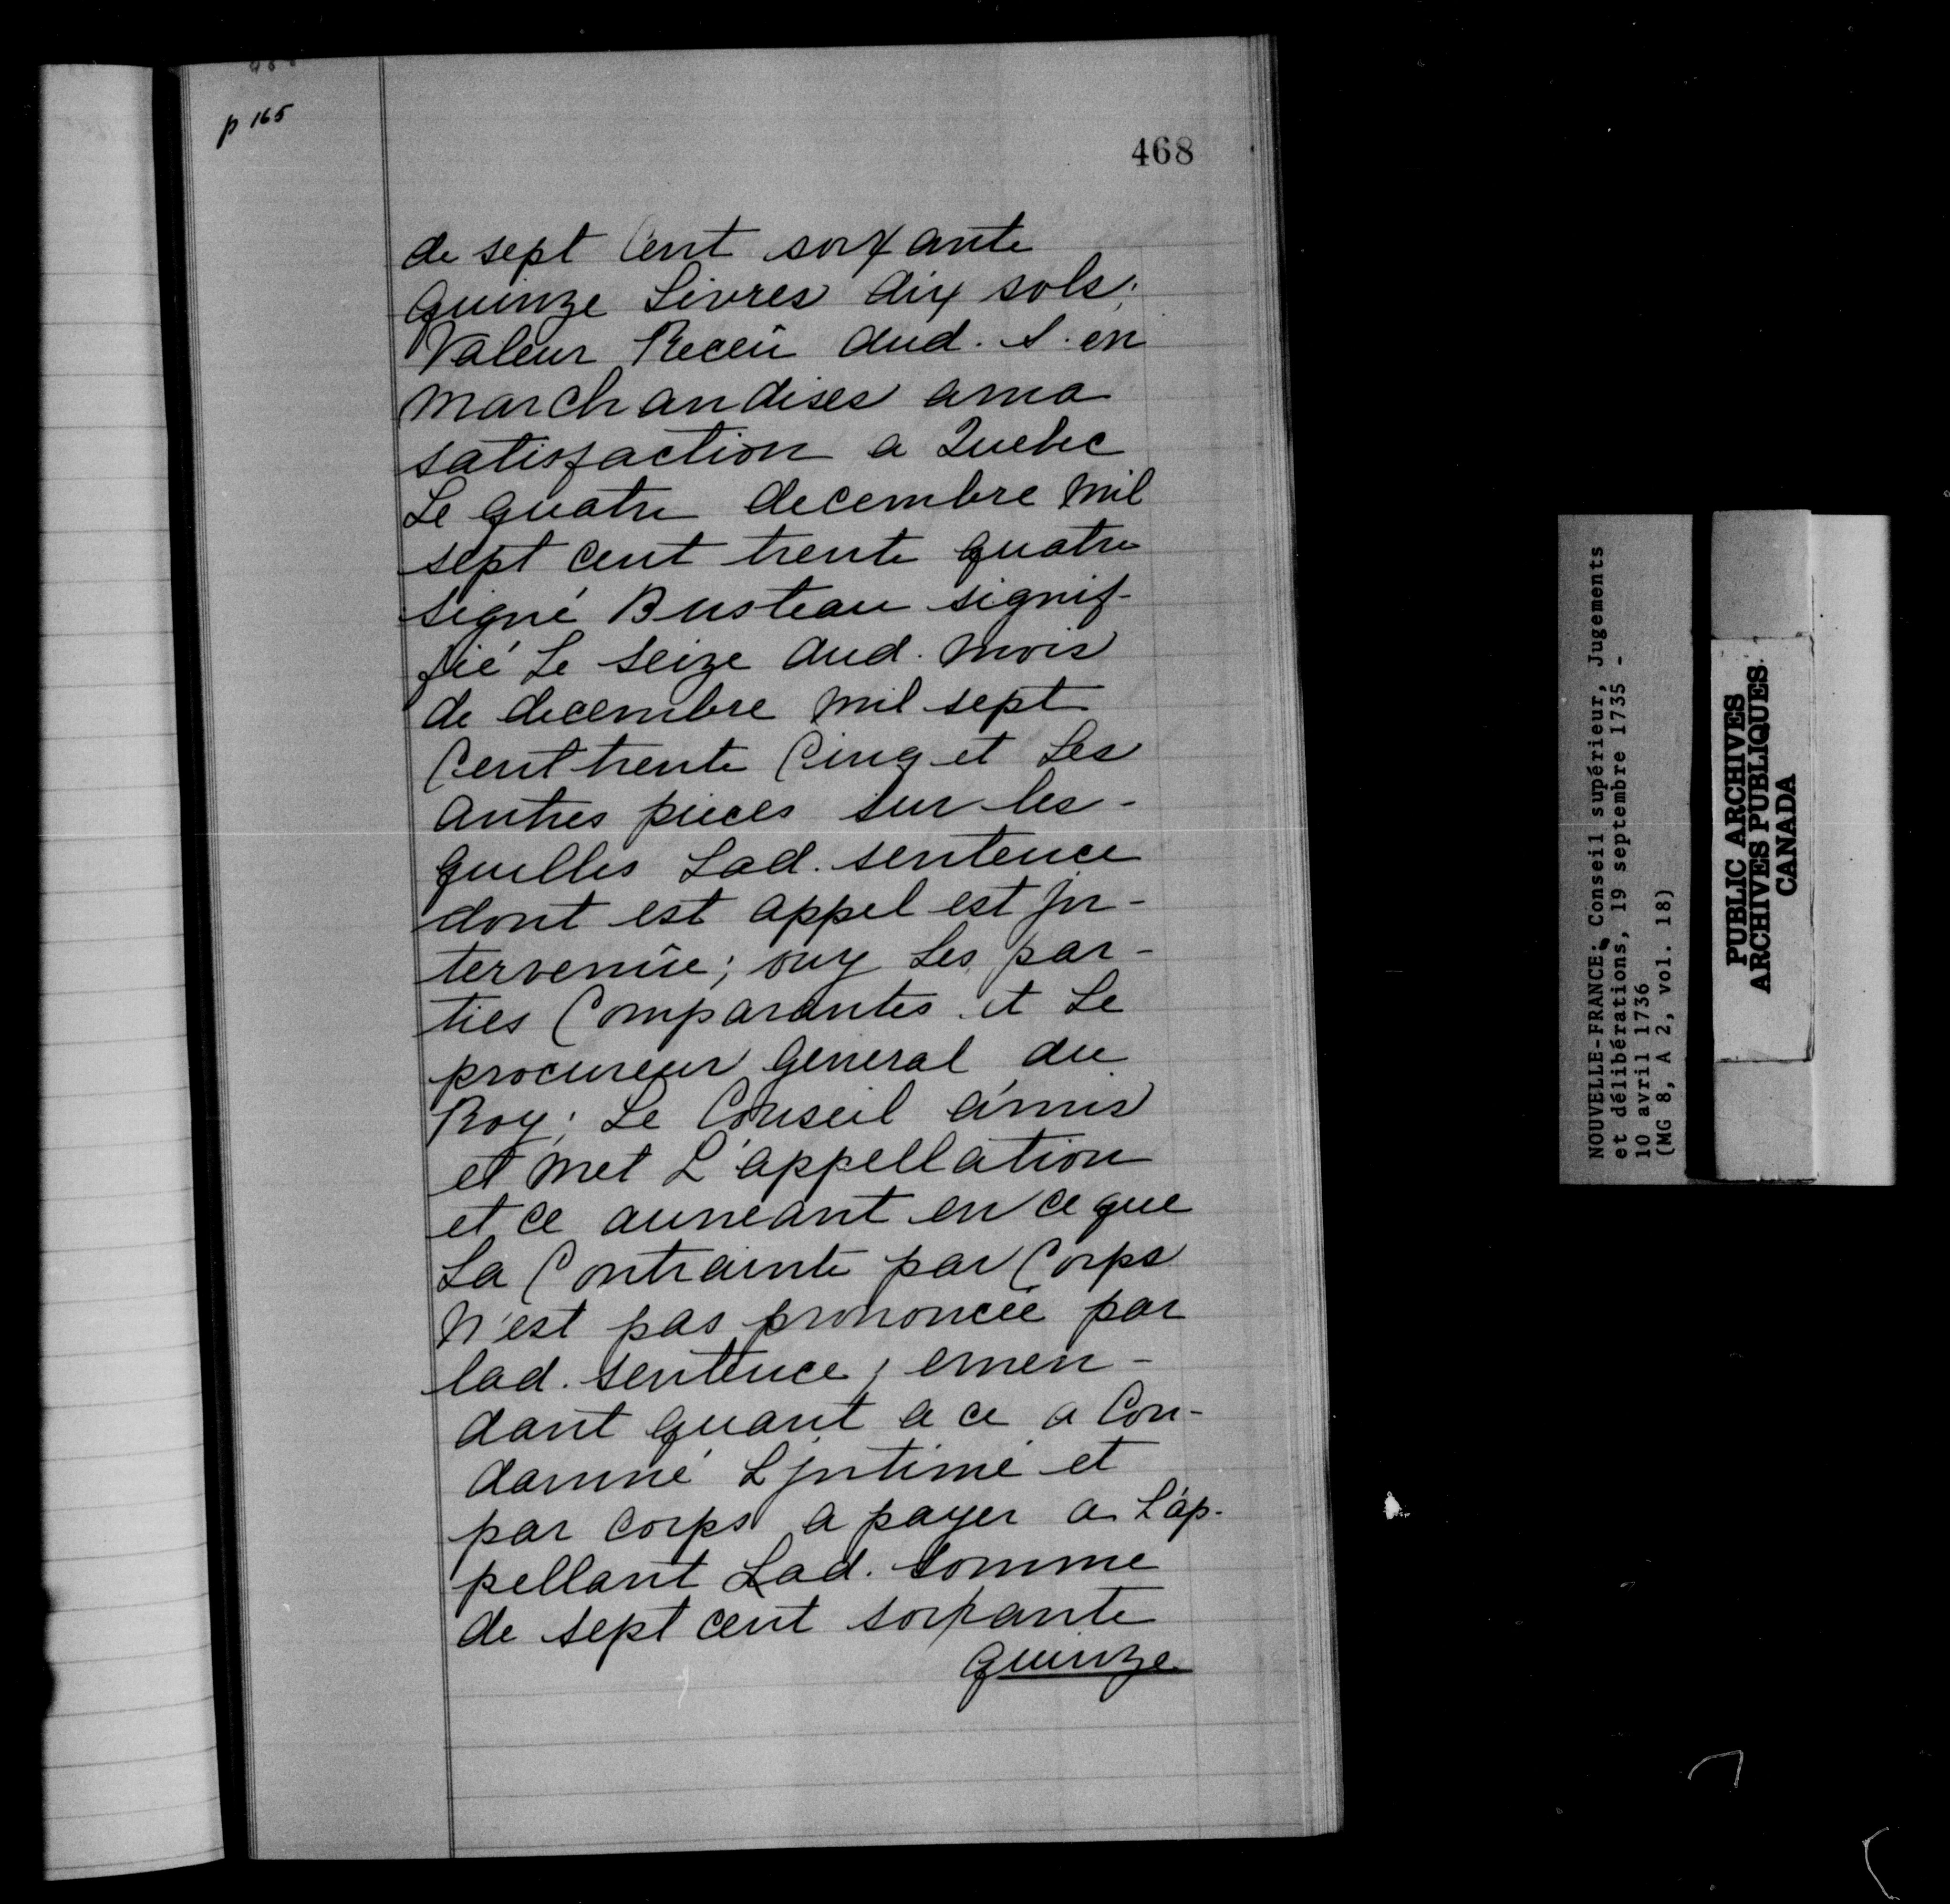 p 165
468
de sept Cent soixante
quinze Livres dix sols;
Valeur Receû dud. S. en
marchandises a ma
satisfaction a Quebec
Le quatre decembre mil
sept cent trente quatre
signé Busteau signif-
fié Le seize dud. mois
de decembre mil sept
Cent trente Cinq et Les
autres pieces sur les-
quelles Lad. sentence
dont est appel est jn-
tervenüe; ouy Les par-
ties Comparantes et Le
procureur general du
Roy; Le Conseil a mis
et met L'appellation
et ce au neant en ce que
La Contrainte par Corps
N'est pas prononcée par
lad. sentence; emen-
dant quant a ce a Con-
damné L'jntimé et
par corps a payer a L'ap-
pellant Lad. somme
de sept cent soixante
quinze
NOUVELLE-FRANCE: Conseil supérieur, Jugements
et délibérations, 19 septembre 1735 -
10 avril 1736
(MG 8, A 2, vol. 18)
PUBLIC ARCHIVES
ARCHIVES PUBLIQUES
CANADA